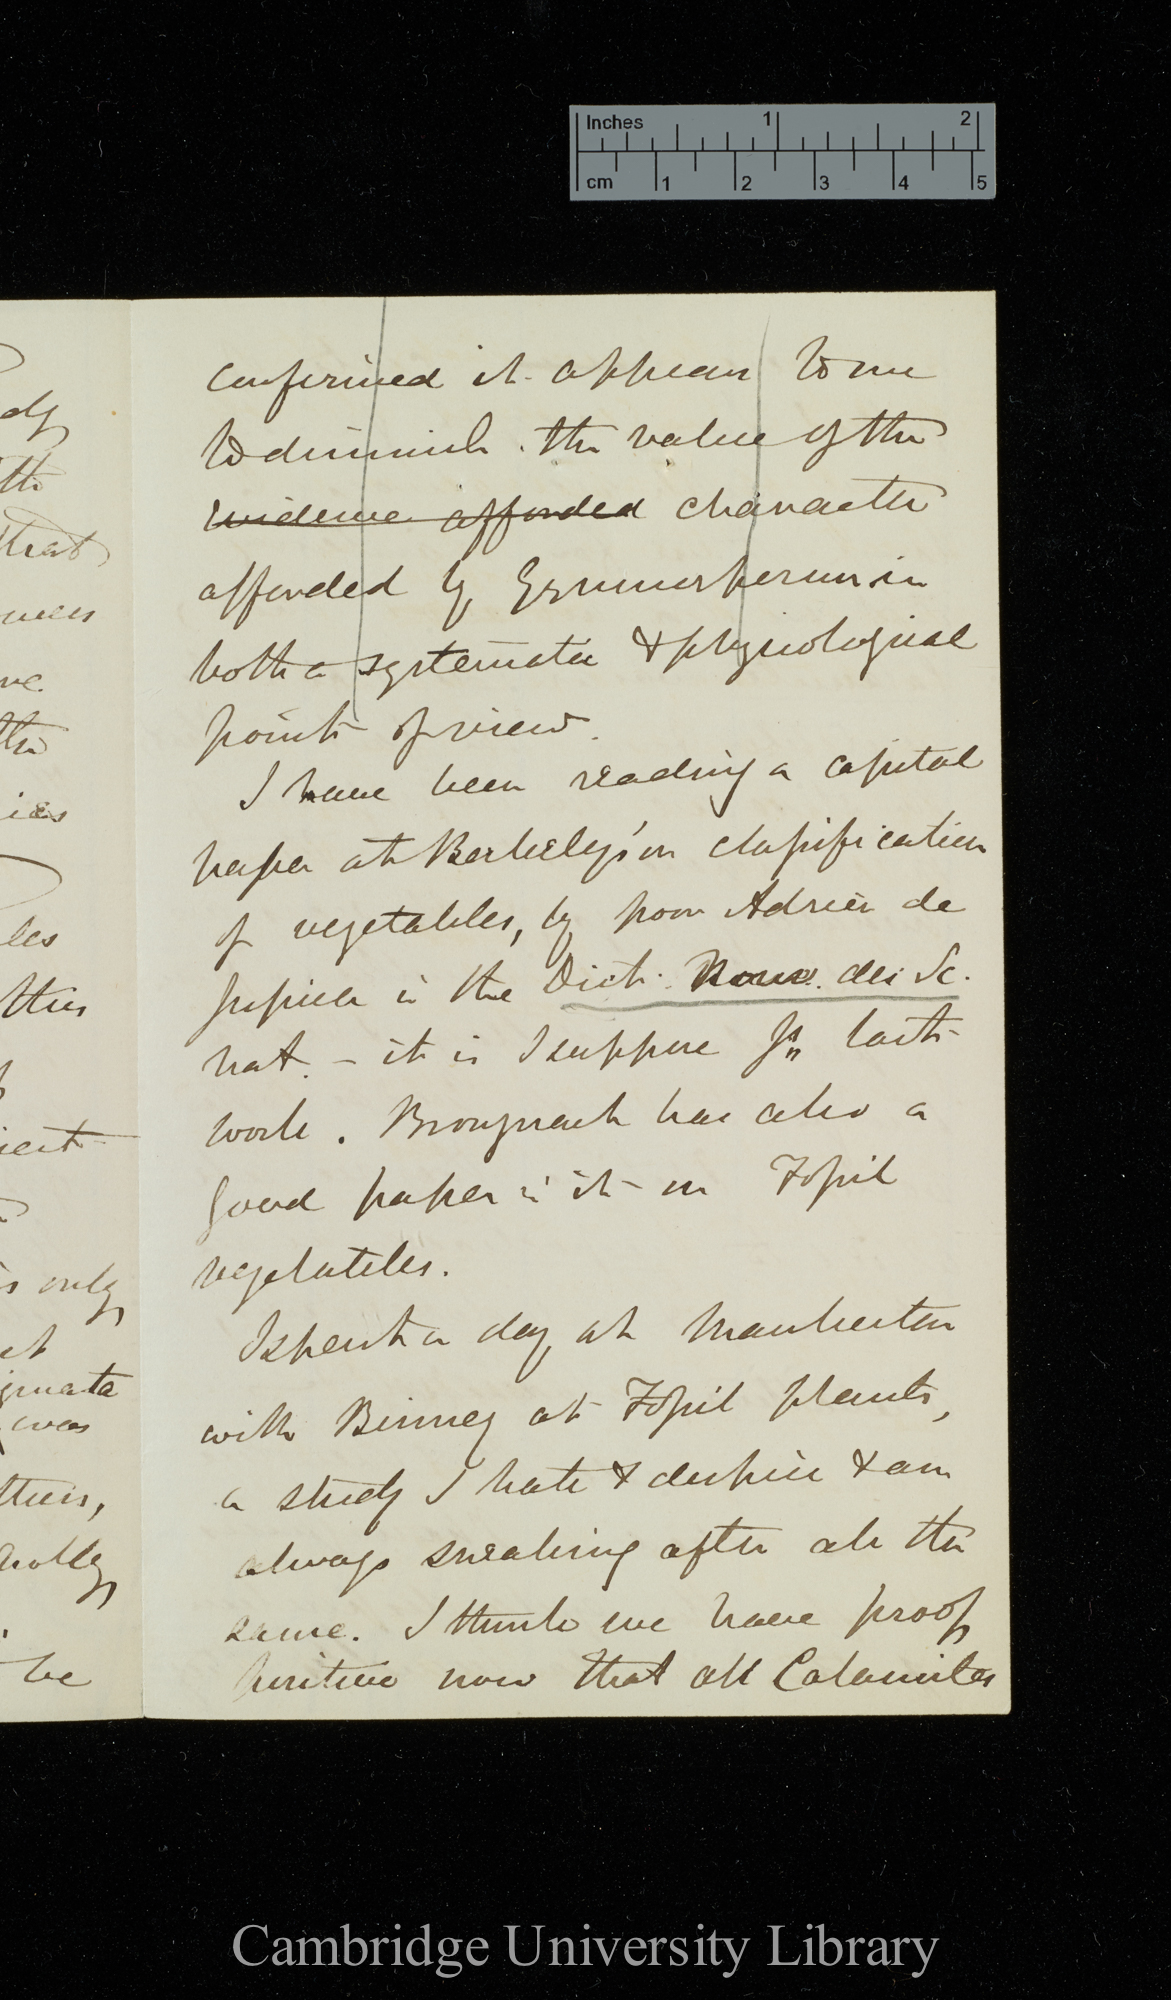 Inches 1 2
cm 1 2 3 4 5
confirmed it appears to me
to diminish the value of the
evidence afforded character
afforded by Gymnosperms in
both a systematic & physiological
points of view.
I have been reading a capital
paper at Berkeley's on classification
of vegetables, by poor Adrien de
Jussieu in the Dict. Nouv. des Sc.
nat. — it is I suppose his last
work. Brongniart has also a
good paper in it on Fossil
vegetables.
I spent a day at Manchester
with Binney at Fossil plants,
a study I hate & despise & am
always sneaking after all the
same. I think we have proof
positive now that all Calamites
dy
the
that
ve
the
ies
les
this
only
was
wholly
be
Cambridge University Library